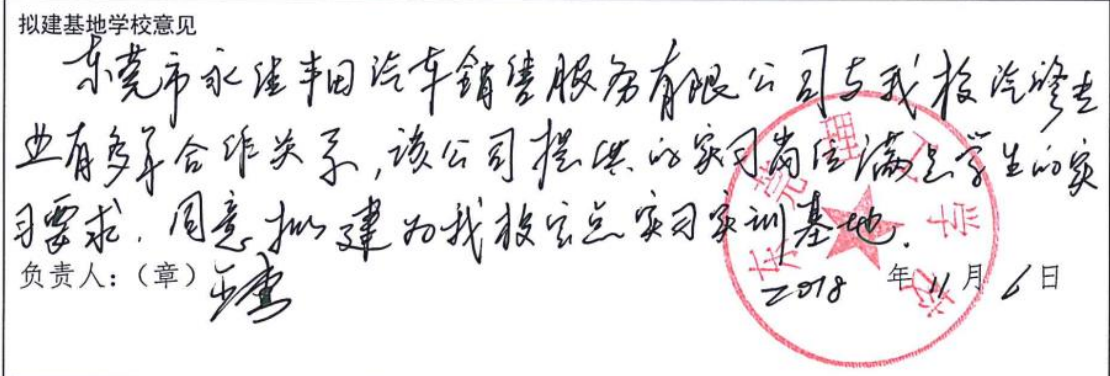 拟建基地学校意见
东莞市永佳丰田汽车销售服务有限公司与我校汽修专
业有多年合作关系,该公司提供的实习岗位满足学生的实
习要求.同意拟建为我校定点实习实训基地.
负责人:(章)
2018年11月6日
东莞理工学校